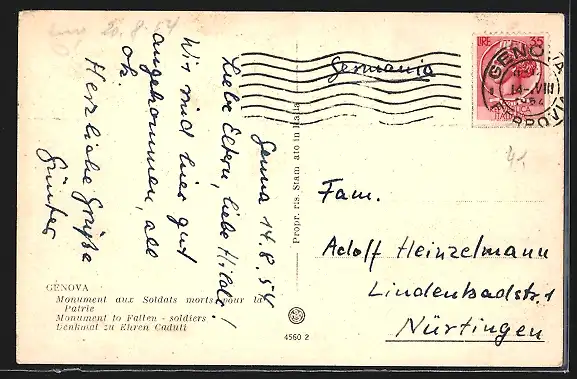 20.8.54
Genua 14.8.54
Liebe Eltern, liebe Hilde!
Wir sind hier gut
angekommen, all
ok.
Herzliche Grüße
Günter
GÉNOVA
Monument aux Soldats morts pour la
Patrie
Monument to Fallen - soldiers
Denkmal zu Ehren Caduti
Propr. ris. Stampato in Italia
4560 2
Germania
LIRE 35
GENOVA
14-VIII
1954
FERROVIA
Fam.
Adolf Heinzelmann
Lindenbadstr. 1
Nürtingen